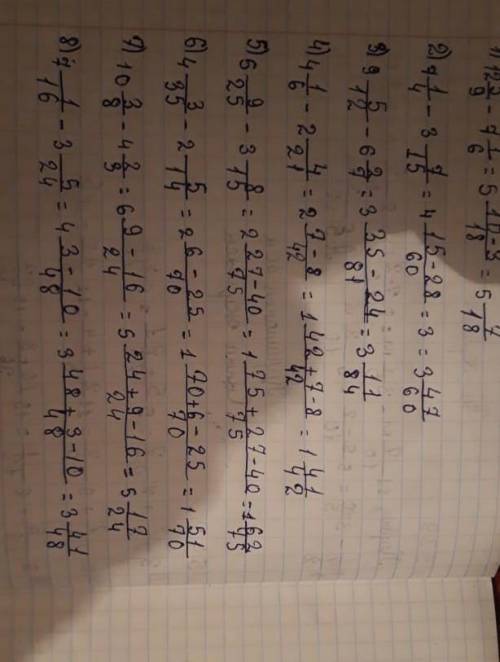 1) 12 5/9 - 7 1/6 = 5 10-3/18 = 5 7/18
2) 7 1/4 - 3 7/15 = 4 15-28/60 = 3 = 3 47/60
3) 9 5/12 - 6 2/7 = 3 35-24/81 = 3 11/84
4) 4 1/6 - 2 4/21 = 2 7-8/42 = 1 42+7-8/42 = 1 41/42
5) 5 9/25 - 3 8/15 = 2 27-40/75 = 1 75+27-40/75 = 1 62/75
6) 4 3/35 - 2 5/14 = 2 6-25/70 = 1 70+6-25/70 = 1 51/70
7) 10 3/8 - 4 2/3 = 6 9-16/24 = 5 24+9-16/24 = 5 17/24
8) 7 1/16 - 3 5/24 = 4 3-10/48 = 3 48+3-10/48 = 3 41/48